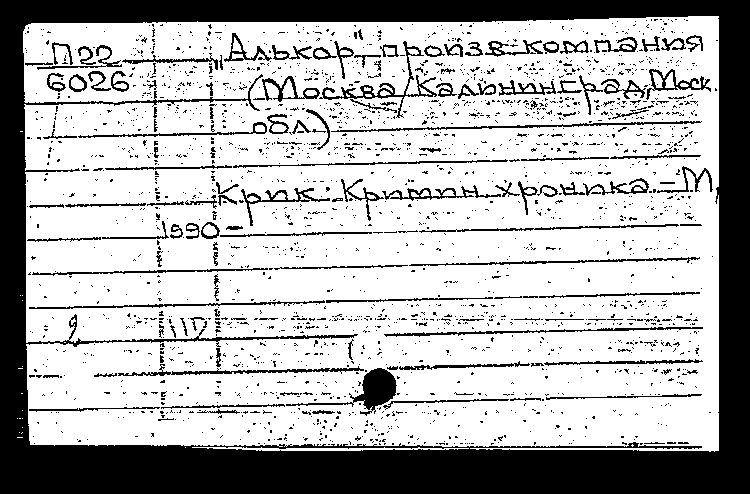 П22
6026
„Алькор", произв. компания
(Москва/Калининград, Моск.
обл.)
Крик: Кримин. хроника. – М.,
1990 –
2